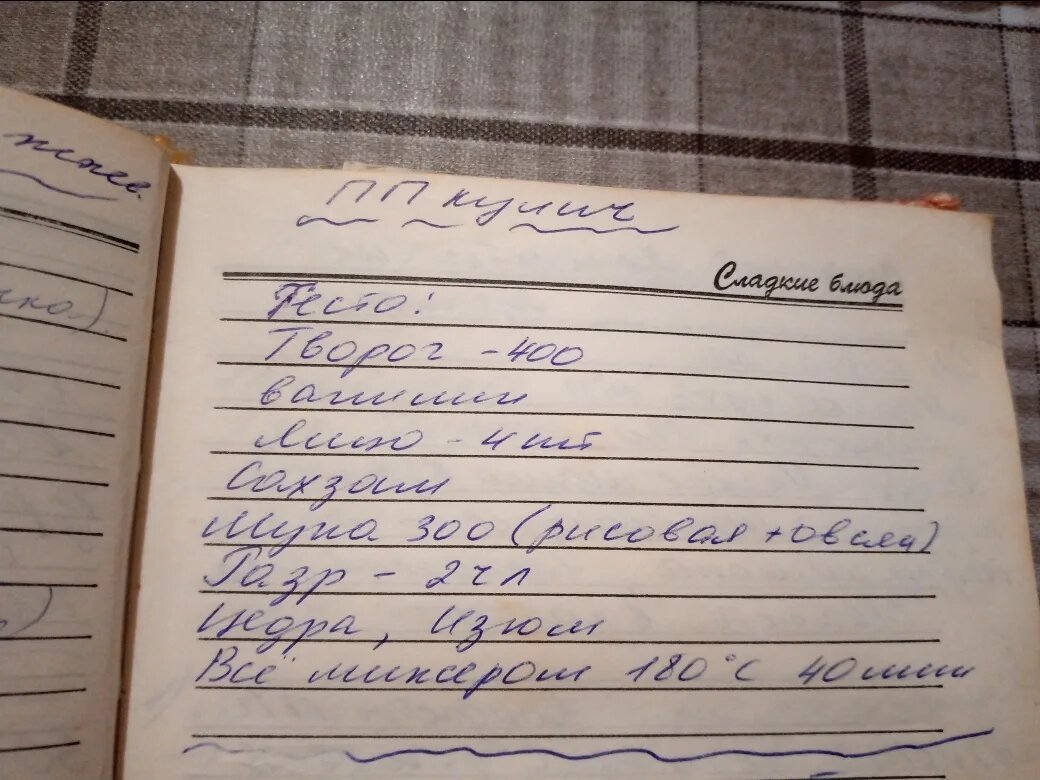 ПП кулич
Сладкие блюда
Тесто:
Творог - 400
ванилин
Яйцо - 4 шт
Сахзам
Мука 300 (рисовая + овсян)
Разр - 2 ч л
Цедра, Изюм
Всё миксером 180°С 40 мин